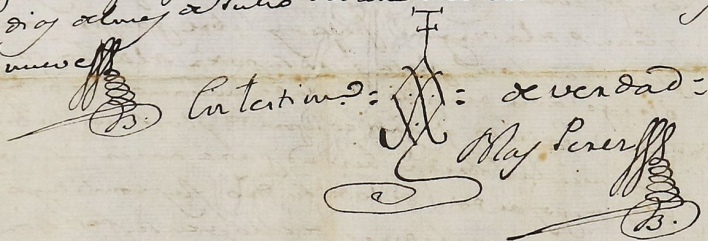 dias del mes de Julio
nueve B.
En testim.º = = de verdad =
Blas Perez
B.